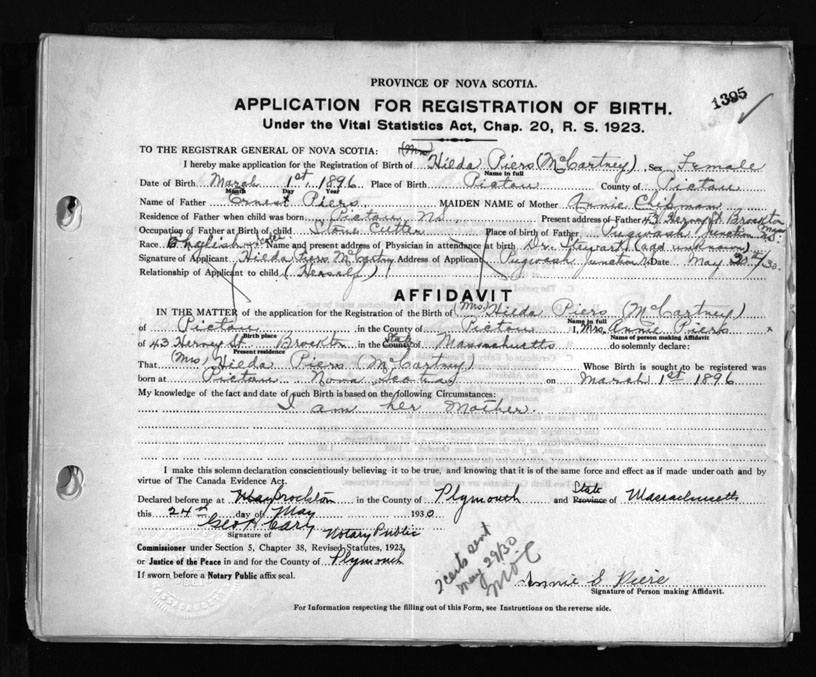 PROVINCE OF NOVA SCOTIA.
1395
APPLICATION FOR REGISTRATION OF BIRTH.
Under the Vital Statistics Act, Chap. 20, R. S. 1923.
TO THE REGISTRAR GENERAL OF NOVA SCOTIA:
I hereby make application for the Registration of Birth of (Mrs) Hilda Piers (McCartney) Sex Female
Name in full
Date of Birth March 1st, 1896 Place of Birth Pictou County of Pictou
Month Day Year
Name of Father Ernest Piers MAIDEN NAME of Mother Annie Chipman
Residence of Father when child was born Pictou, NS. Present address of Father 43 Hervey St Brockton Mass
Occupation of Father at Birth of child Stone Cutter Place of birth of Father Pugwash Junction NS.
Race English Name and present address of Physician in attendance at birth Dr. Stewart (add unknown)
Signature of Applicant Hilda Piers McCartney Address of Applicant Pugwash Junction Date May 20th/30.
Relationship of Applicant to child (Herself)
AFFIDAVIT
IN THE MATTER of the application for the Registration of the Birth of (Mrs) Hilda Piers (McCartney)
Name in full
of Pictou in the County of Pictou I, Mrs. Annie Piers
Birth place Name of person making Affidavit
of 43 Hervey St. Brockton in the County State of Massachusetts do solemnly declare:
Present residence
That (Mrs) Hilda Piers (McCartney) Whose Birth is sought to be registered was
born at Pictou Nova Scotia on March 1st 1896
My knowledge of the fact and date of such Birth is based on the following Circumstances:
I am her Mother.
I make this solemn declaration conscientiously believing it to be true, and knowing that it is of the same force and effect as if made under oath and by
virtue of The Canada Evidence Act.
Declared before me at Brockton in the County of Plymouth and Province State of Massachusetts
this 24th day of May 1930
Geo A Cary Notary Public
Signature of
Commissioner under Section 5, Chapter 38, Revised Statutes, 1923,
or Justice of the Peace in and for the County of Plymouth
If sworn before a Notary Public affix seal.
2 certs sent
May 29/30
Annie S Piers
Signature of Person making Affidavit.
For Information respecting the filling out of this Form, see Instructions on the reverse side.